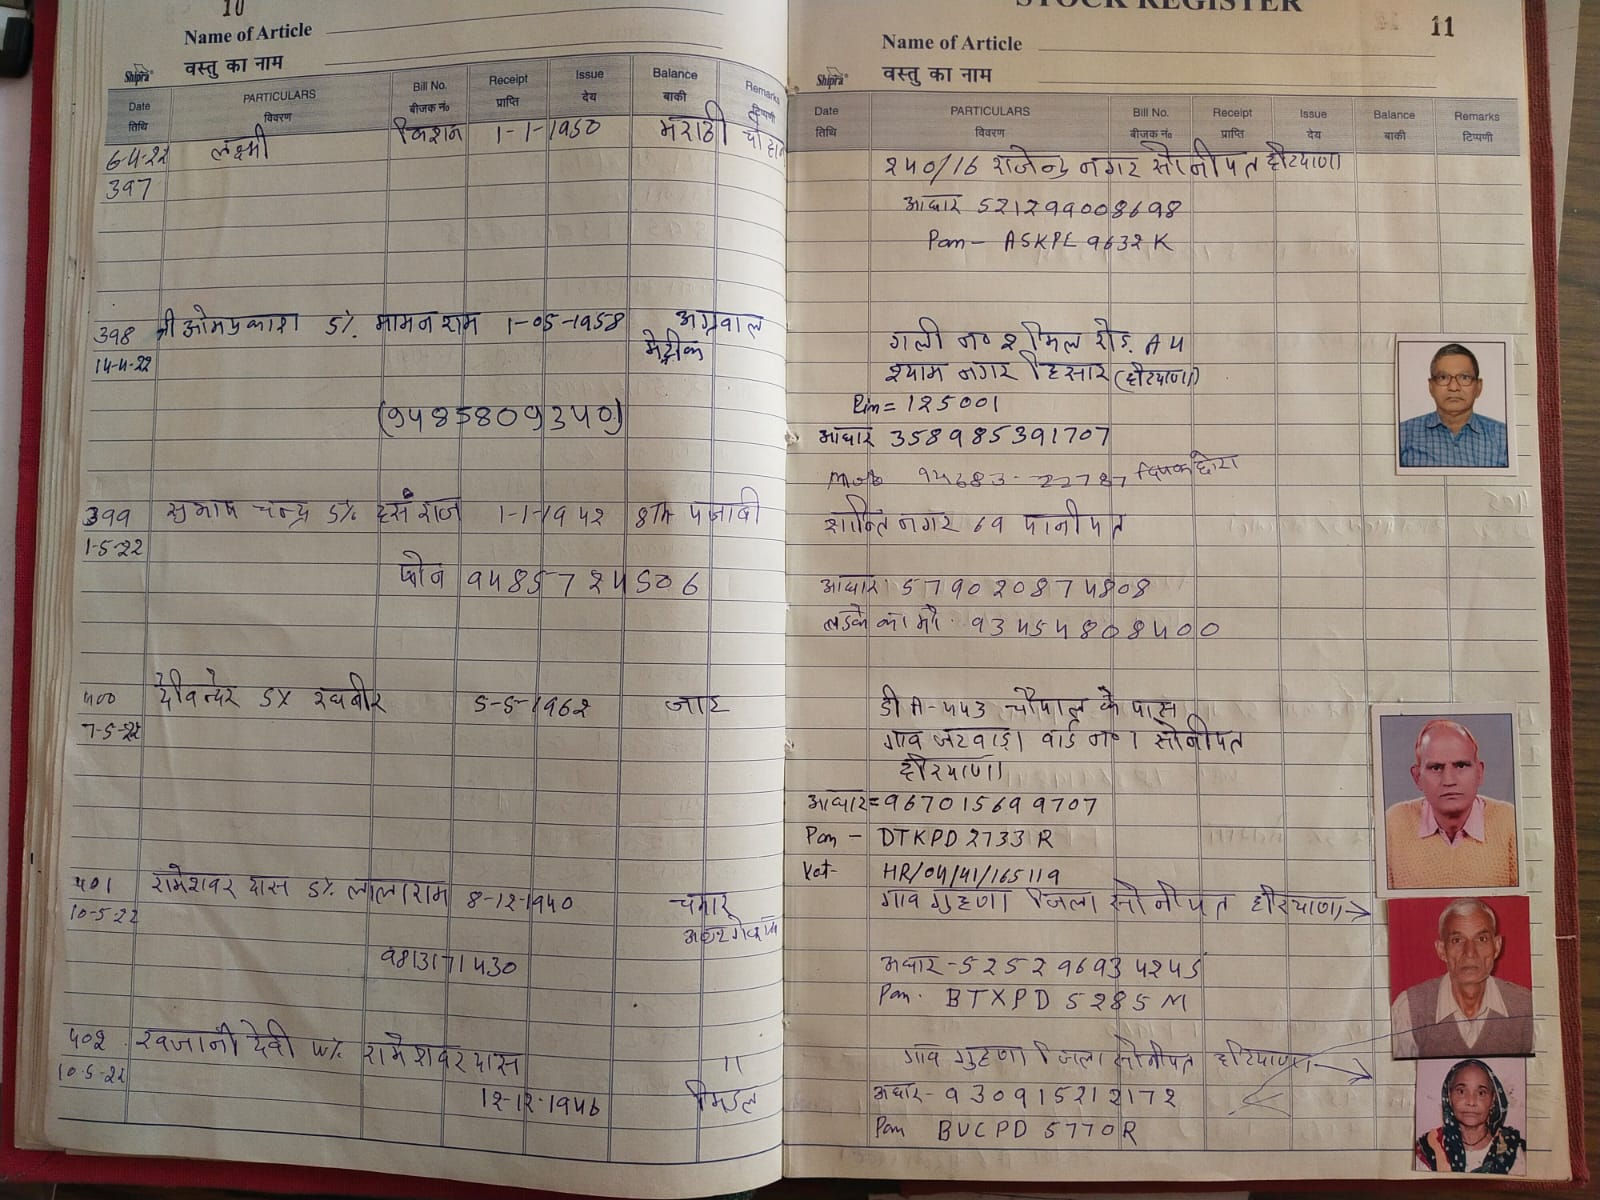 10
Name of Article
वस्तु का नाम
Shipra
Date तिथि PARTICULARS विवरण Bill No. बीजक नं० Receipt प्राप्ति Issue देय Balance बाकी Remarks टिप्पणी
6-4-22 लक्ष्मी किशन 1-1-1950 मराठी चौहान
397
398 श्री ओमप्रकाश S/. मामन राम 1-05-1958 अग्रवाल
14-4-22 मेट्रीक
(9485809240)
399 सुभाष चन्द्र S/. हंस राज 1-1-1942 8TH पंजाबी
1-5-22
फोन 9485724506
400 देविन्देर S/. रघबीर 5-5-1962 जाट
7-5-22
401 रामेशवर दास S/. लालाराम 8-12-1940 चमार
10-5-22
9813171430
402 खजानी देवी W/. रामेशवर दास 11
10-5-22 12-12-1946 मिडल
STOCK REGISTER
11
Name of Article
वस्तु का नाम
Shipra
Date तिथि PARTICULARS विवरण Bill No. बीजक नं० Receipt प्राप्ति Issue देय Balance बाकी Remarks टिप्पणी
240/16 राजेन्द्र नगर सोनीपत हरियाणा
आधार 521299008698
Pan- ASKPL 9632 K
गली न० 2 मिल रोड़ A 4
श्याम नगर हिसार (हरियाणा)
Pin = 125001
आधार 358985391707
Mob 94683-22787
शान्ति नगर 69 पानीपत
आधार 579020874808
लडके का मो. 93454808400
डी A-443 चौपाल के पास
गाव जटवाड़ा वार्ड न० 1 सोनीपत
हरियाणा
आधार = 967015699707
Pan - DTKPD 2733 R
Vot- HR/04/41/165119
गाव गुहणा जिला सोनीपत हरियाणा
आधार - 525296934245
Pan. BTXPD 5285 M
गाव गुहणा जिला सोनीपत हरियाणा
आधार - 930915212172
Pan BVCPD 5770 R